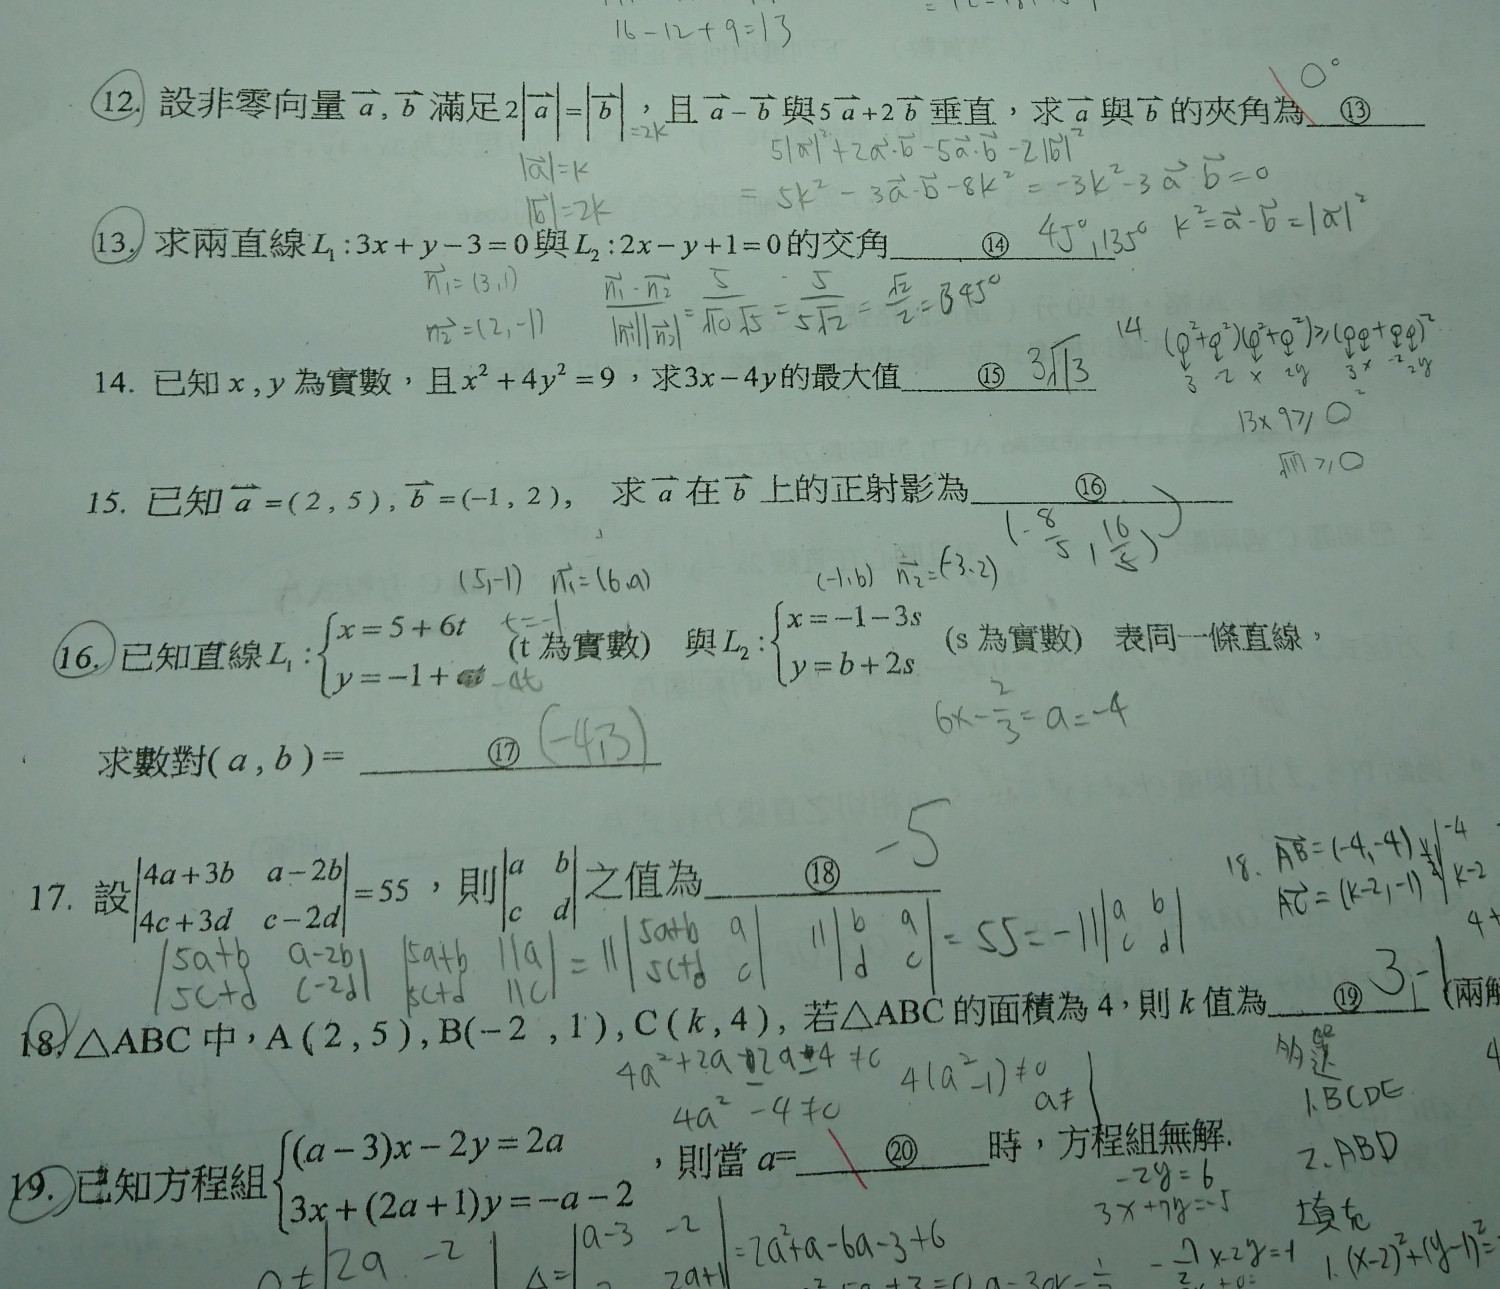 16-12+9=13
12. 設非零向量 a, b 滿足 2|a|=|b|, 且 a-b 與 5a+2b 垂直，求 a 與 b 的夾角為 ⑬ 0°
=2k
|a|=k
|b|=2k
5|a|²+2a·b-5a·b-2|b|²
= 5k²-3a·b-8k² = -3k²-3a·b=0
k²=a-b=|a|²
13. 求兩直線 L₁:3x+y-3=0 與 L₂:2x-y+1=0 的交角 ⑭ 45°,135°
n₁=(3,1)
n₂=(2,-1)
n₁·n₂/|n₁||n₂| = 5/√10√5 = 5/5√2 = √2/2 = 45°
14. 已知 x, y 為實數，且 x²+4y²=9，求 3x-4y 的最大值 ⑮ 3√13
14.
3 -2 x 2y 3x -2 2y
15. 已知 a=(2, 5), b=(-1, 2), 求 a 在 b 上的正射影為 ⑯
(-8/5, 16/5)
(5,-1) n₁=(6,a)
(-1,b) n₂=(-3,2)
16. 已知直線 L₁: {x=5+6t, y=-1+at (t 為實數) 與 L₂: {x=-1-3s, y=b+2s (s 為實數) 表同一條直線，
t=-1
-4t
6x-2/3=a=-4
求數對(a, b)= ⑰ (-4,3)
17. 設 |4a+3b a-2b; 4c+3d c-2d|=55，則 |a b; c d| 之值為 ⑱ -5
|5a+b a-2b; 5c+d c-2d| |5a+b 11a; 5c+d 11c| = 11|5a+b a; 5c+d c| 11|b a; d c| = 55 = -11|a b; c d|
18. AB=(-4,-4)
AC=(k-2,-1)
-4
k-2
18. △ABC 中，A(2, 5), B(-2, 1), C(k, 4), 若△ABC 的面積為 4，則 k 值為 ⑲ 3,-1 (兩解
4a²-4≠0
4(a²-1)≠0
a≠1
19. 已知方程組 {(a-3)x-2y=2a, 3x+(2a+1)y=-a-2 ，則當 a= ⑳ 時，方程組無解.
多選
1.BCDE
2.ABD
填充
1.(x-2)²+(y-1)²=
-2y=6
3x+7y=-5
2a -2
△=|a-3 -2
2a+1| =2a²+a-6a-3+6